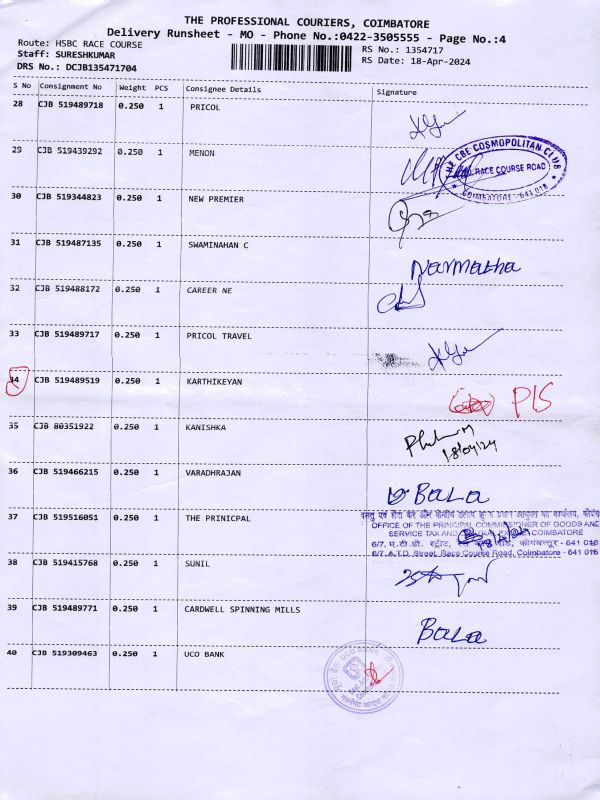 THE PROFESSIONAL COURIERS, COIMBATORE
Delivery Runsheet - MO - Phone No.:0422-3505555 - Page No.:4
Route: HSBC RACE COURSE
RS No.: 1354717
Staff: SURESHKUMAR
RS Date: 18-Apr-2024
DRS No.: DCJB135471704
S No Consignment No Weight PCS Consignee Details Signature
28 CJB 519489718 0.250 1 PRICOL
29 CJB 519439292 0.250 1 MENON
THE CBE COSMOPOLITAN CLUB
RACE COURSE ROAD
COIMBATORE - 641 018
30 CJB 519344823 0.250 1 NEW PREMIER
31 CJB 519487135 0.250 1 SWAMINAHAN C
Narmatha
32 CJB 519488172 0.250 1 CAREER NE
33 CJB 519489717 0.250 1 PRICOL TRAVEL
34 CJB 519489519 0.250 1 KARTHIKEYAN
PIS
35 CJB 80351922 0.250 1 KANISHKA
18/04/24
36 CJB 519466215 0.250 1 VARADHRAJAN
Bala
37 CJB 519516051 0.250 1 THE PRINICPAL
OFFICE OF THE PRINCIPAL COMMISSIONER OF GOODS AND
SERVICE TAX AND COIMBATORE
6/7, ए.टी.डी. स्ट्रीट, कोयंबत्तूर - 641 018
6/7, A.T.D. Street, Race Course Road, Coimbatore - 641
38 CJB 519415768 0.250 1 SUNIL
39 CJB 519489771 0.250 1 CARDWELL SPINNING MILLS
Bala
40 CJB 519309463 0.250 1 UCO BANK
UCO BANK